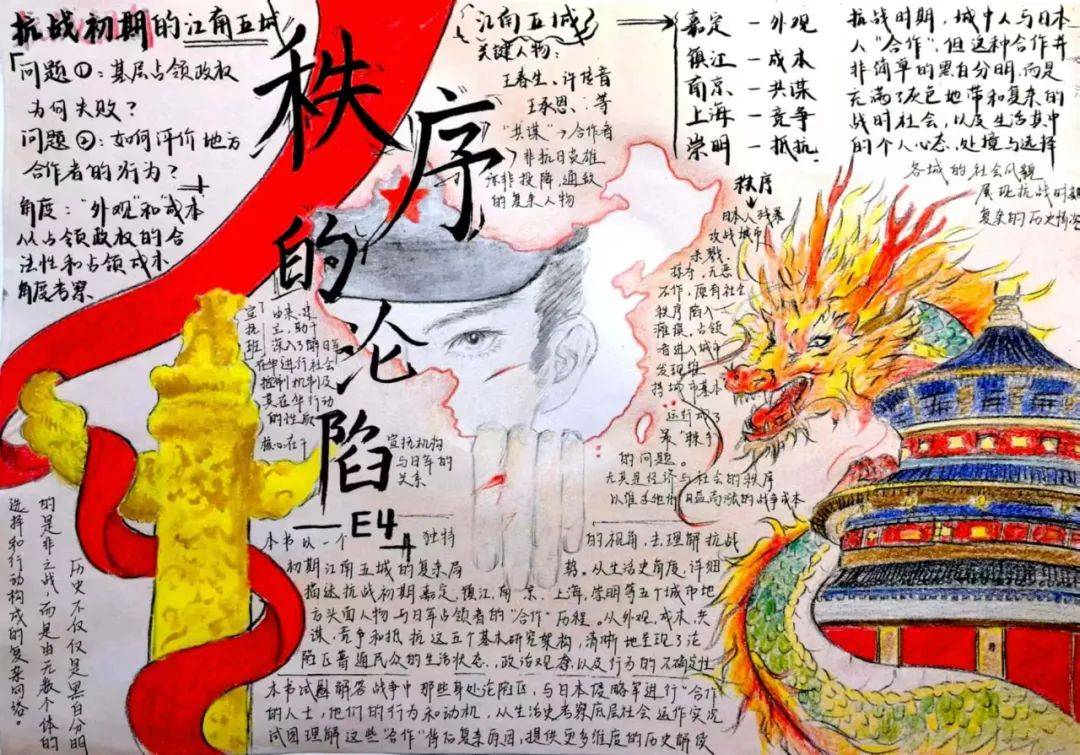 抗战初期的江南五城
「问题①：基层占领政权
为何失败？
问题②：如何评价地方
合作者的行为？
角度："外观"和"成本"
从占领政权的合
法性和占领成本
角度考察
秩序的沦陷
——E4
江南五城
关键人物：
王春生、许传音
王承恩、等
"共谋"→合作者
→非抗日英雄
亦非投降、通敌
的复杂人物
嘉定 — 外观
镇江 — 成本
南京 — 共谋
上海 — 竞争
崇明 — 抵抗
抗战时期，城中人与日本
人"合作"，但这种合作并
非简单的黑白分明，而是
充满了灰色地带和复杂的
战时社会，以及生活其中
的个人心态、处境与选择
各城的社会风貌
展现抗战时期
复杂的历史情况
秩序
日本人残暴
攻战城市
杀戮、
掠夺，无恶
不作，原有社会
秩序陷入一
滩，占领
者进入城市
发现维
持城市基本
运行成了
最"棘手"
的问题。
尤其是经济与社会的秩序
以维系他们日益高涨的战争成本
宣
抚
班
深入了解日军
在华进行社会
控制机制及
其在华行动
的性质
核心在于
宣抚机构
与日军的
关系
本书以一个独特的视角，去理解抗战
初期江南五城的复杂局势。从生活史角度，详细
描述抗战初期嘉定、镇江、南京、上海、崇明等五个城市地
方头面人物与日军占领者的"合作"历程。从外观、成本、共
谋、竞争和抵抗这五个基本研究架构，清晰地呈现了沦
陷区普通民众的生活状态、政治观态以及行为的不确定性
本书试图解答战争中那些身处沦陷区，与日本侵略军进行"合作"
的人士，他们的行为和动机，从生活史考察底层社会运作实况
试图理解这些"合作"背后复杂原因，提供更多维度的历史解读
历史不仅仅是黑白分明
的是非之战，而是由无数个体的
选择和行动构成的复杂网络。